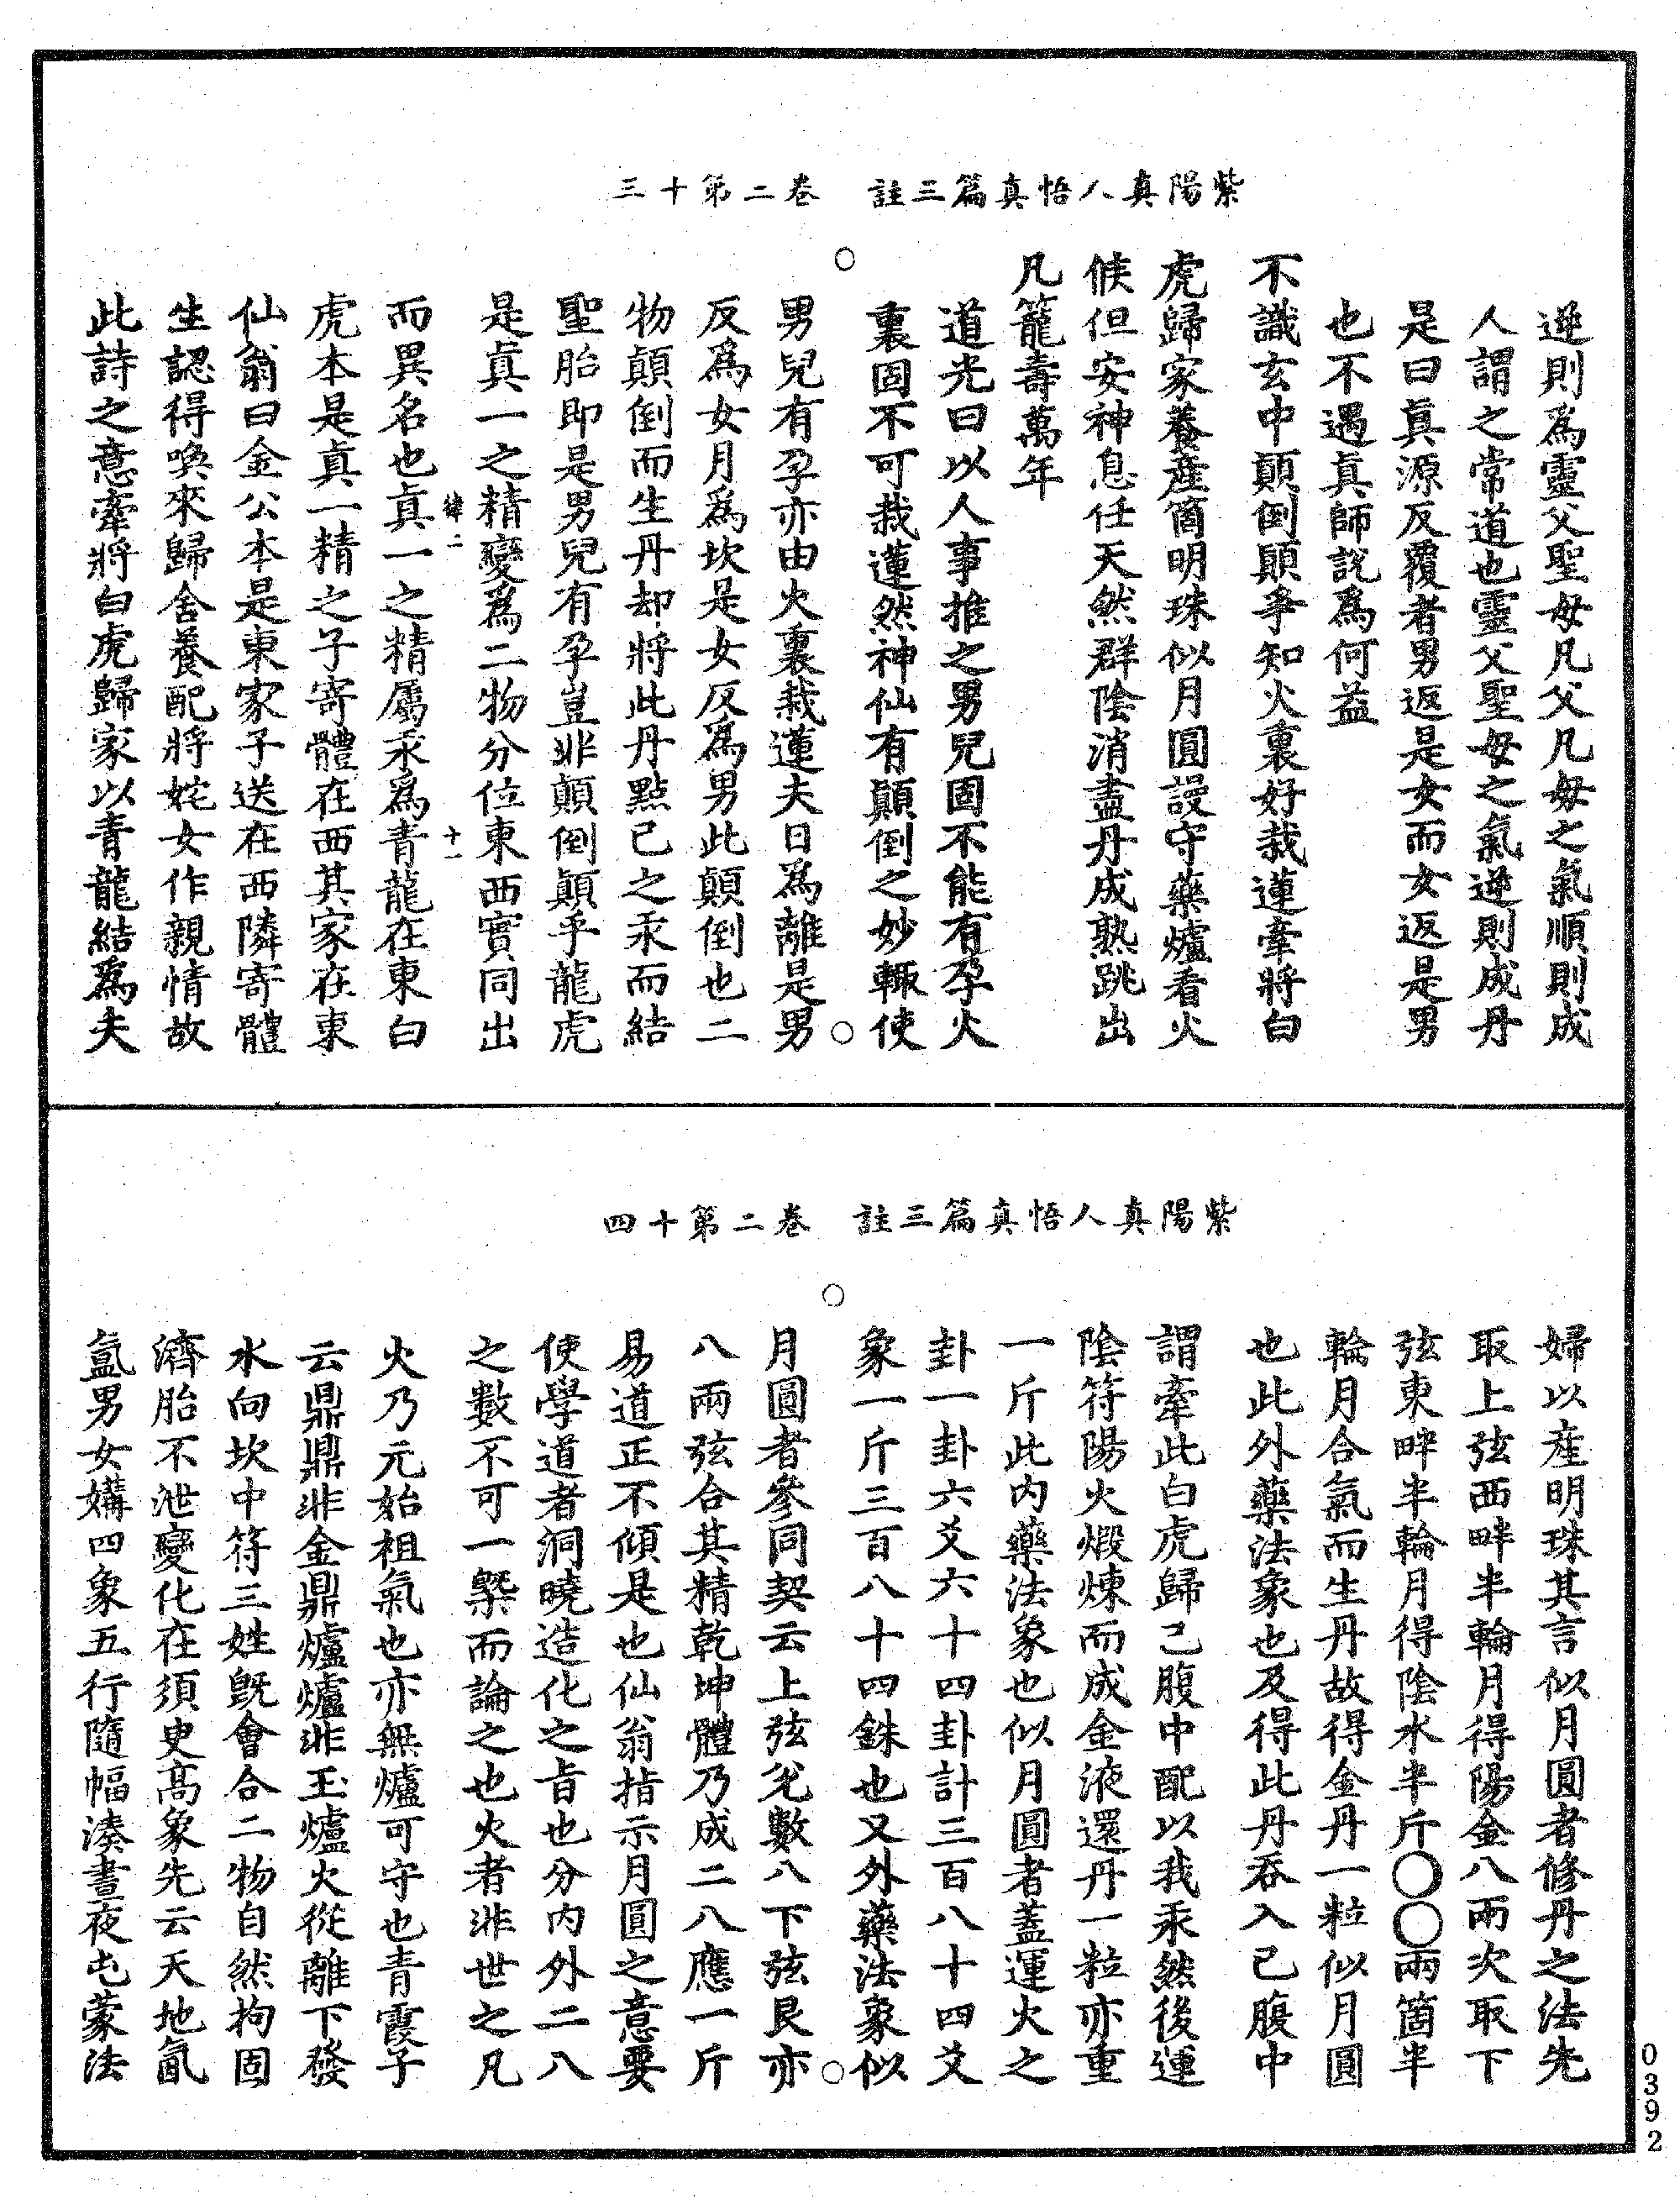 紫陽真人悟真篇三註　卷二第十三
逆則爲靈父聖母凡父凡母之氣順則成
人謂之常道也靈父聖母之氣逆則成丹
是曰真源反覆者男返是女而女返是男
也不遇真師説爲何益
不識玄中顛倒顛爭知火裏好栽蓮牽將白
虎歸家養產箇明珠似月圓謾守藥爐看火
候但安神息任天然群陰消盡丹成熟跳出
凡籠壽萬年
道光曰以人事推之男兒固不能有孕火
裏固不可栽蓮然神仙有顛倒之妙輒使
男兒有孕亦由火裏栽蓮夫日爲離是男
反爲女月爲坎是女反爲男此顛倒也二
物顛倒而生丹却將此丹點己之汞而結
聖胎即是男兒有孕豈非顛倒顛乎龍虎
是真一之精變爲二物分位東西實同出
律二　十一
而異名也真一之精屬汞爲青龍在東白
虎本是真一精之子寄體在西其家在東
仙翁曰金公本是東家子送在西隣寄體
生認得喚來歸舍養配將姹女作親情故
此詩之意牽將白虎歸家以青龍結爲夫
紫陽真人悟真篇三註　卷二第十四
婦以産明珠其言似月圓者修丹之法先
取上弦西畔半輪月得陽金八兩次取下
弦東畔半輪月得陰水半斤〇〇兩箇半
輪月合氣而生丹故得金丹一粒似月圓
也此外藥法象也及得此丹吞入己腹中
謂牽此白虎歸己腹中配以我汞然後運
陰符陽火煅煉而成金液還丹一粒亦重
一斤此内藥法象也似月圓者蓋運火之
卦一卦六爻六十四卦計三百八十四爻
象一斤三百八十四銖也又外藥法象似
月圓者參同契云上弦兊數八下弦艮亦
八兩弦合其精乾坤體乃成二八應一斤
易道正不傾是也仙翁指示月圓之意要
使學道者洞曉造化之旨也分内外二八
之數不可一槩而論之也火者非世之凡
火乃元始祖氣也亦無爐可守也青霞子
云鼎鼎非金鼎爐爐非玉爐火從離下發
水向坎中符三姓既會合二物自然拘固
濟胎不泄變化在須臾高象先云天地氤
氲男女媾四象五行隨幅湊晝夜屯蒙法
0392